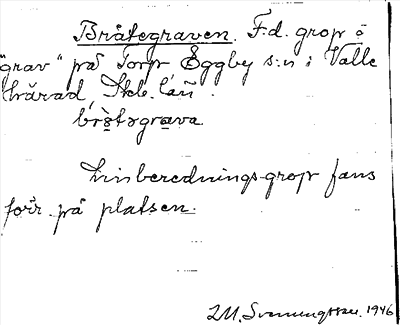 Bråtegraven. F.d. grop o
"grav" på Torp Eggby s:n i Valle
härad, Skb. län.
brò̤təgrava
Linberednings-grop fans
förr på platsen.
Svenningsson. 1946